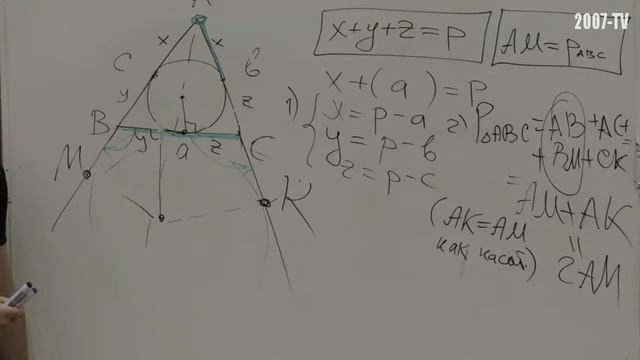 2007-TV
x+y+z=p
AM=p_ABC
A
x x
c b
y z
B y a z C
M K
x+(a)=p
1) { x=p-a
y=p-b
z=p-c
2) P△ABC=AB+AC+
+BM+CK
=AM+AK
(AK=AM
как касат.)
=
2AM